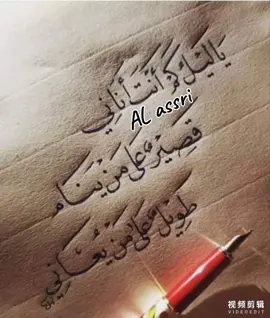 يَا لَيْلُ كَمْ أَنْتَ أَنَانِي
AL assri
قَصِيْرٌ عَلَى مَنْ يَنَام
طَوِيْلٌ عَلَى مَنْ يُعَانِي
视频剪辑
VIDEOEDIT